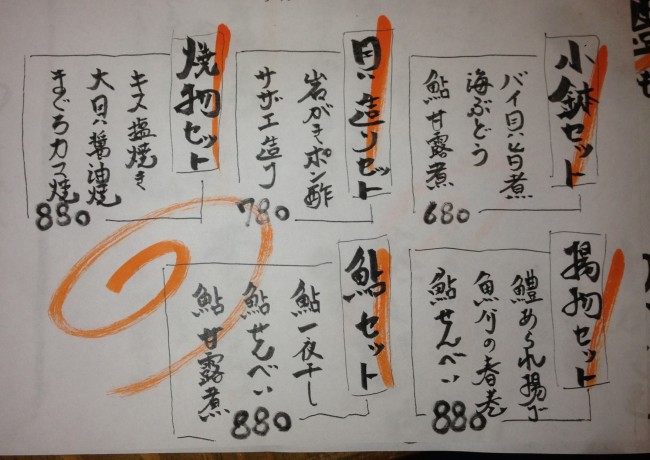 小鉢セット
バイ貝旨煮
海ぶどう
鮎甘露煮
680
貝造りセット
岩がきポン酢
サザエ造り
780
焼物セット
キス塩焼き
大貝醤油焼
まぐろカマ焼
880
揚物セット
鱧あられ揚げ
魚介の春巻
鮎せんべい
880
鮎セット
鮎一夜干し
鮎せんべい
鮎甘露煮
880